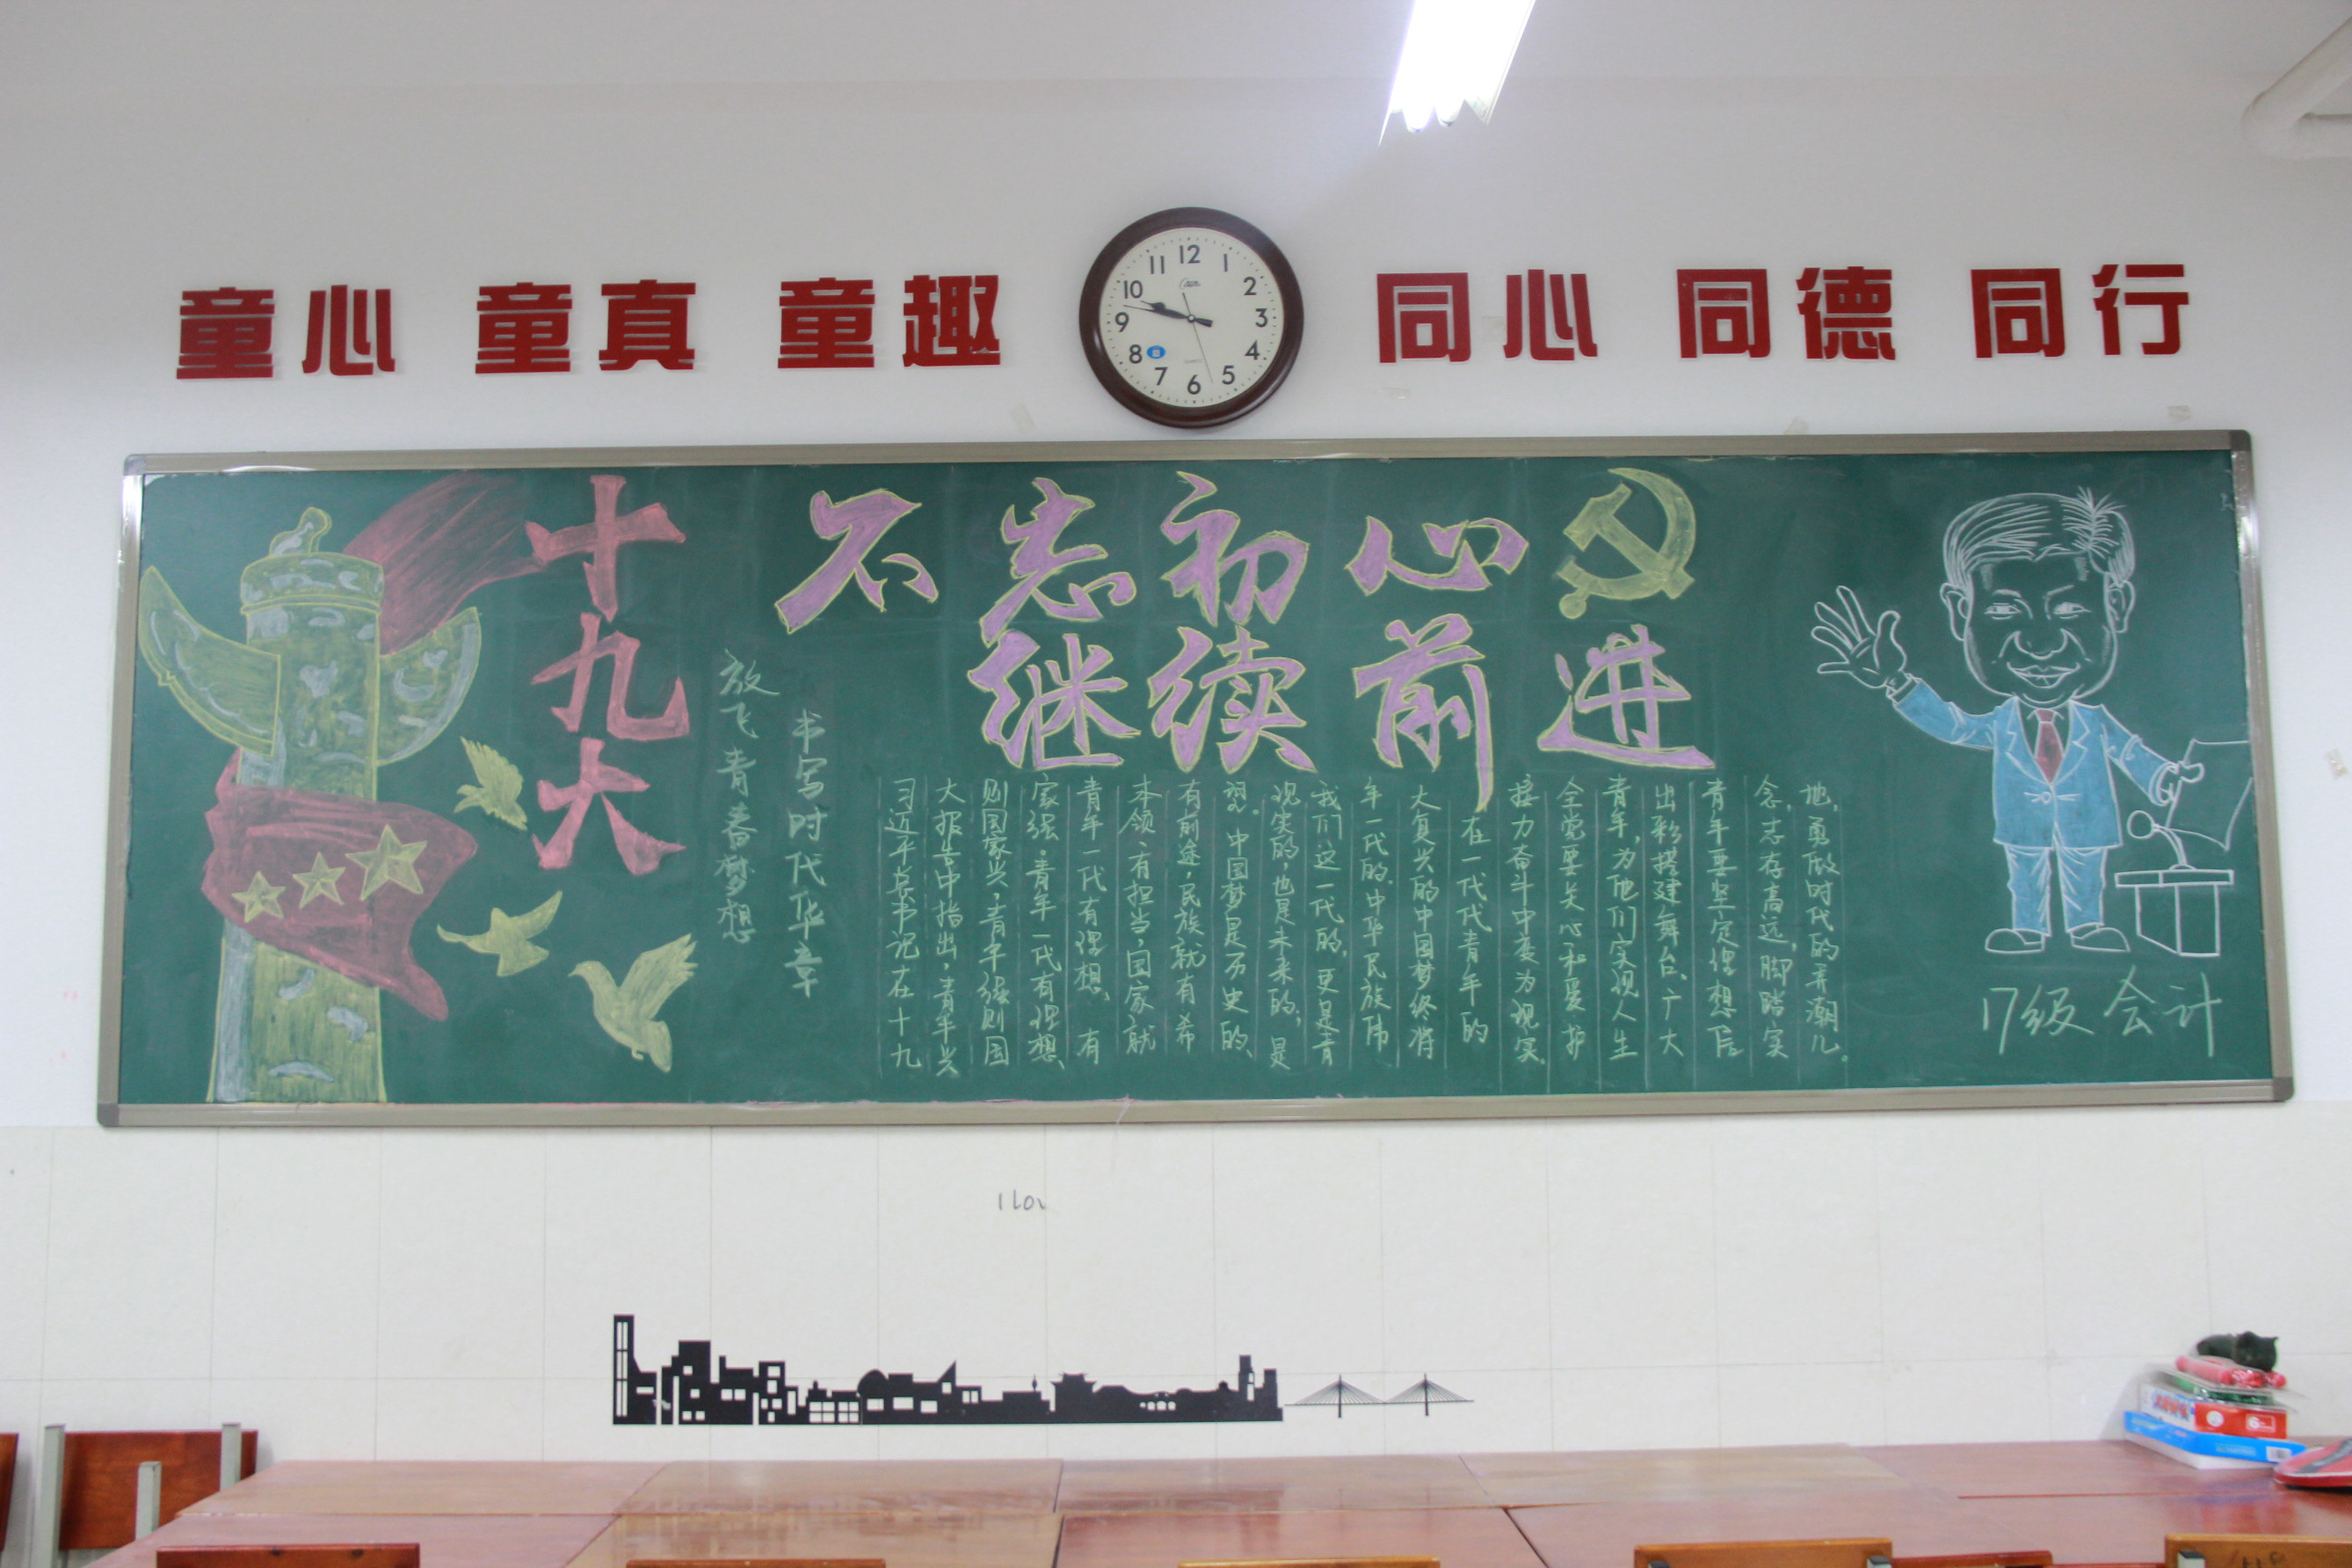 童心 童真 童趣
同心 同德 同行
12
1
2
3
4
5
6
7
8
9
10
11
十九大
不忘初心
继续前进
放飞青春梦想
书写时代华章
习近平总书记在十九
大报告中指出,青年兴
则国家兴,青年强则国
家强。青年一代有理想、
青年一代有理想、有
本领、有担当,国家就
有前途,民族就有希
望。中国梦是历史的、
现实的,也是未来的;是
我们这一代的,更是青
年一代的。中华民族伟
大复兴的中国梦终将
在一代代青年的
接力奋斗中变为现实。
全党要关心和爱护
青年,为他们实现人生
出彩搭建舞台。广大
青年要坚定理想信
念,志存高远,脚踏实
地,勇做时代的弄潮儿。
17级会计
I lov